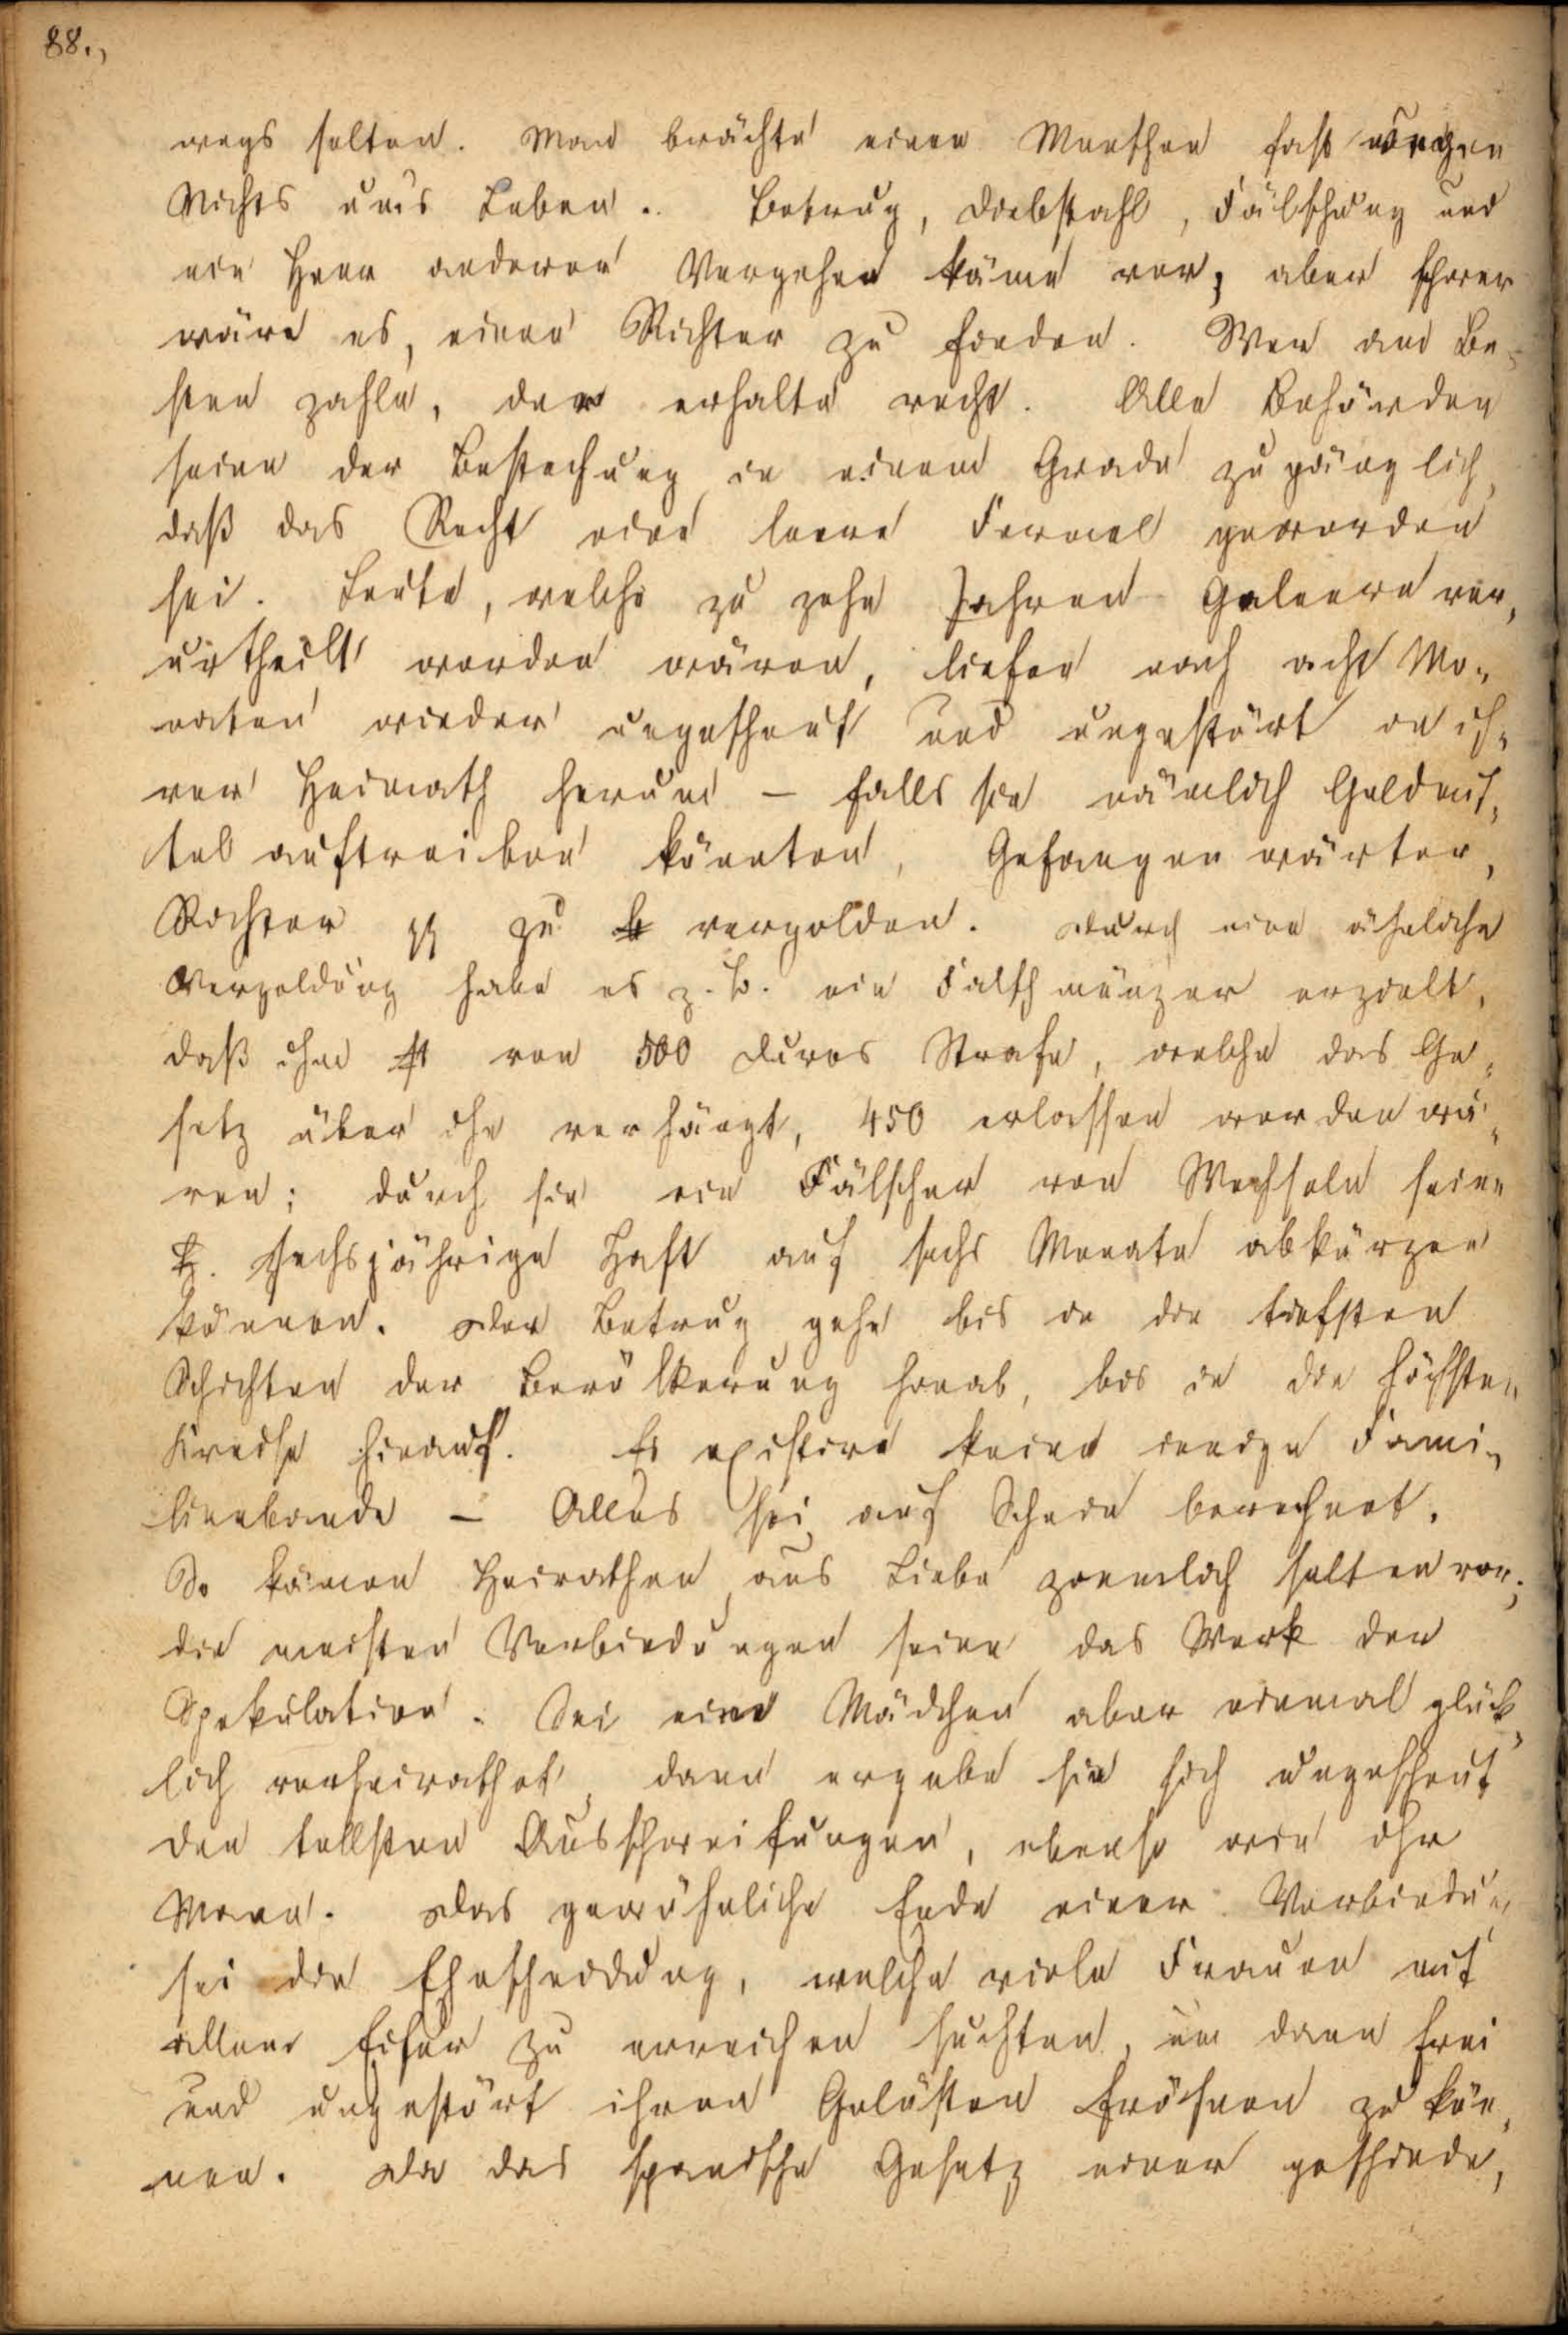 88.,
wegs selten. Man brächte einen Menschen fast wegen
Nichts um's Leben. Betrug, Diebstahl, Fälschung und
ein Heer anderer Vergehen käme vor, aber schwer
wäre es, einen Richter zu finden. Wer am Be-
sten zahle, der erhalte recht. Alle Behörden
seien der Bestechung in einem Grade zugänglich,
daß das Recht eine leere Formel geworden
sei. Leute, welche zu zehn Jahren Galeere ver-
urtheilt worden wären, liefen nach acht Mo-
naten wieder ungescheut und ungestört in ih-
rer Heimath herum – falls sie nämlich Geldmit-
tel auftreiben könnten, Gefangenwärter,
Richter pp zu vergolden. Durch eine ähnliche
Vergoldung habe es z. B. ein Falschmünzer erzielt,
daß ihm von 500 Duros Strafe, welche das Ge-
setz über ihn verhängt, 450 erlassen worden wä-
ren; durch sie ein Fälscher von Wechseln seine
sechsjährige Haft auf sechs Monate abkürzen
können. Der Betrug gehe bis in die tiefsten
Schichten der Bevölkerung hinab, bis in die höchsten
Kreise hinauf. Es existire keine innige Fami-
lienbande – Alles sei auf Schein berechnet.
So kämen Heirathen aus Liebe ziemlich selten vor;
die meisten Verbindungen seien das Werk der
Spekulation. Sei eine Mädchen aber einmal glück-
lich verheirathet, dann ergebe sie sich ungescheut
den tollsten Ausschweifungen, ebenso wie ihr
Mann. Das gewöhnliche Ende einer Verbindung
sei die Ehescheidung, welche viele Frauen mit
allem Eifer zu erreichen suchten, um dann frei
und ungestört ihren Gelüsten fröhnen zu kön-
nen. Da das spanische Gesetz einer geschiede-